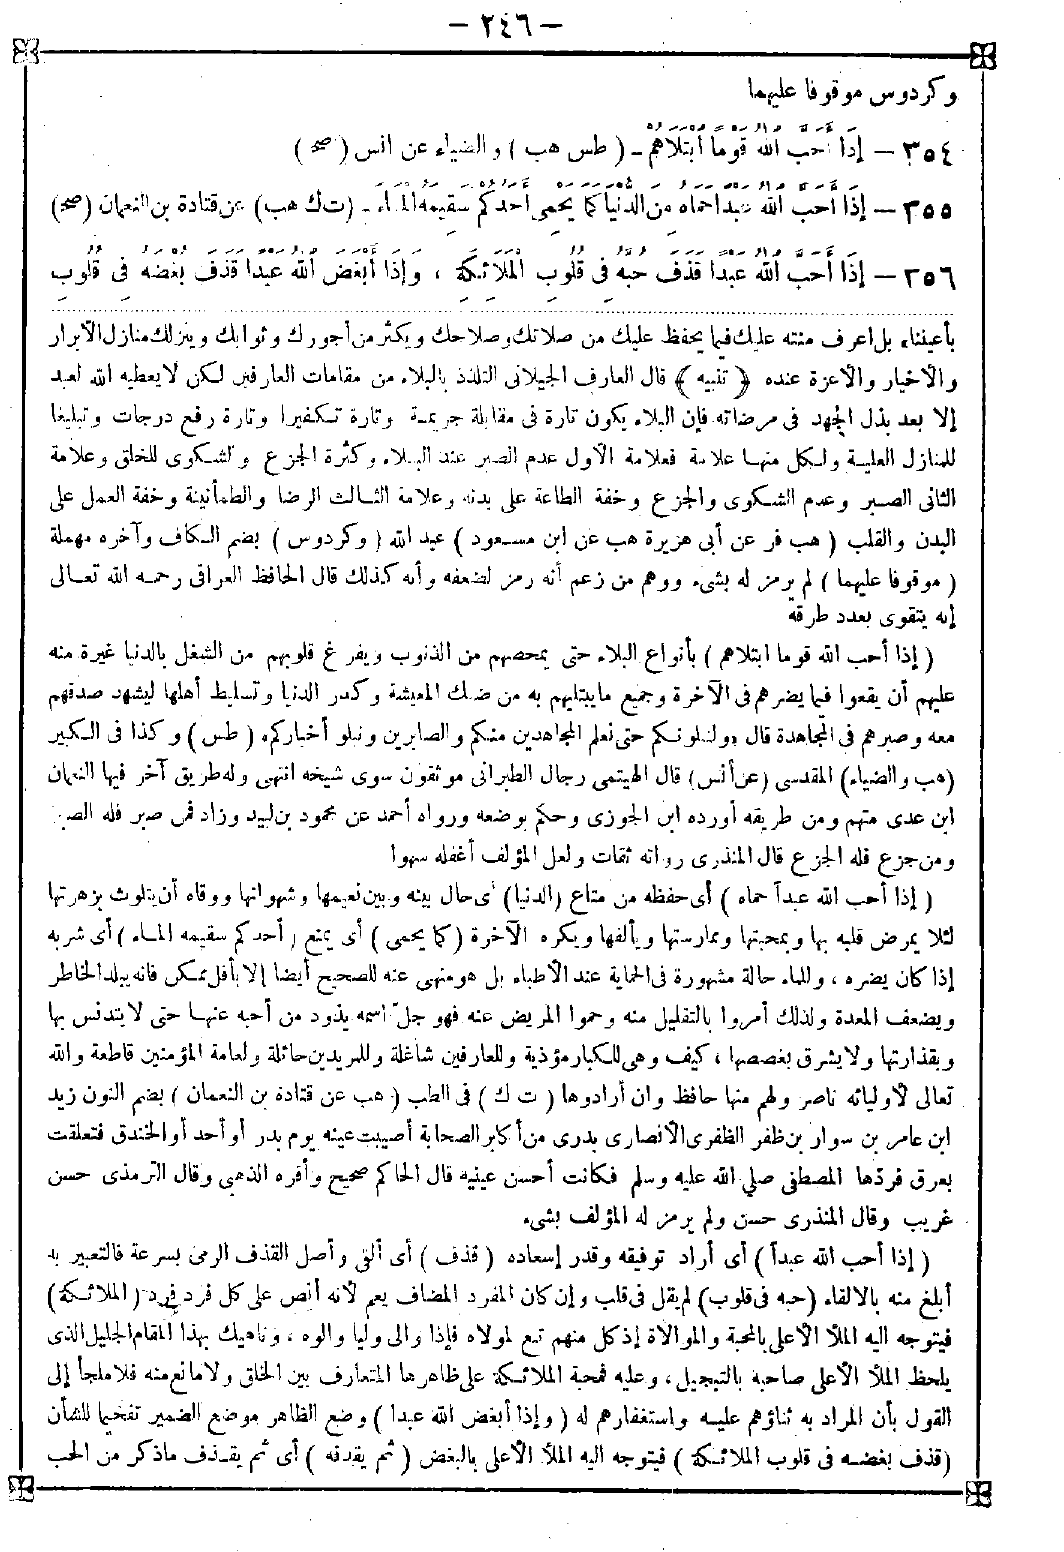 – ٢٤٦ –
وكردوس موقوفا عليهما
٣٥٤ – إِذَا أَحَبَّ اللهُ قَوْمًا أَبْتَلَاهُمْ – ( طس هب ) والضياء عن انس (صح)
٣٥٥ – إِذَا أَحَبَّ اللهُ عَبْدًا حَمَاهُ مِنَ الدُّنْيَا كَمَا يَحْمِى أَحَدُكُمْ سَقِيمَهُ الْمَاءَ – (ت ك هب) عن قتادة بن النعمان (صح)
٢٥٦ – إِذَا أَحَبَّ اللهُ عَبْدًا قَذَفَ حُبَّهُ فِى قُلُوبِ الْمَلَائِكَةِ ، وَإِذَا أَبْغَضَ اللهُ عَبْدًا قَذَفَ بُغْضَهُ فِى قُلُوبِ
بأعيننا، بل اعرف منته عليك فيما يحفظ عليك من صلاتك وصلاحك ويكثر من أجورك وثوابك وينزلك منازل الأبرار
والأخيار والأعزة عنده ﴿ تنبيه ﴾ قال العارف الجيلانى التلذذ بالبلاء من مقامات العارفين لكن لا يعطيه الله لعبد
إلا بعد بذل الجهد فى مرضاته فإن البلاء يكون تارة فى مقابلة جريمة وتارة تكفيرا وتارة رفع درجات وتبليغا
للمنازل العلية ولكل منها علامة فعلامة الأول عدم الصبر عند البلاء وكثرة الجزع والشكوى للخلق وعلامة
الثانى الصبر وعدم الشكوى والجزع وخفة الطاعة على بدنه وعلامة الثالث الرضا والطمأنينة وخفة العمل على
البدن والقلب ( هب فر عن أبى هريرة هب عن ابن مسعود ) عبد الله ( وكردوس ) بضم الكاف وآخره مهملة
( موقوفا عليهما ) لم يرمز له بشىء ووهم من زعم أنه رمز لضعفه وأنه كذلك قال الحافظ العراقى رحمه الله تعالى
إنه يتقوى بعدد طرقه
( إذا أحب الله قوما ابتلاهم ) بأنواع البلاء حتى يمحصهم من الذنوب ويفرغ قلوبهم من الشغل بالدنيا غيرة منه
عليهم أن يقعوا فيما يضرهم فى الآخرة وجميع ما يبتليهم به من ضنك المعيشة وكدر الدنيا وتسليط أهلها ليشهد صدقهم
معه وصبرهم فى المجاهدة قال «ولنبلونكم حتى نعلم المجاهدين منكم والصابرين ونبلو أخباركم» ( طس ) وكذا فى الكبير
(هب والضياء) المقدسى (عن أنس) قال الهيتمى رجال الطبرانى موثقون سوى شيخه انتهى وله طريق آخر فيها النعمان
ابن عدى متهم ومن طريقه أورده ابن الجوزى وحكم بوضعه ورواه أحمد عن محمود بن لبيد وزاد فمن صبر فله الصبر
ومن جزع فله الجزع قال المنذرى رواته ثقات ولعل المؤلف أغفله سهوا
( إذا أحب الله عبدا حماه ) أى حفظه من متاع (الدنيا) أى حال بينه وبين نعيمها وشهواتها ووقاه أن يتلوث بزهرتها
لئلا يمرض قلبه بها وبمحبتها وممارستها ويألفها ويكره الآخرة (كما يحمى ) أى يمنع ( أحدكم سقيمه الماء ) أى شربه
إذا كان يضره ، وللماء حالة مشهورة فى الحماية عند الأطباء بل هو منهى عنه للصحيح أيضا إلا بأقل ممكن فانه يبلد الخاطر
ويضعف المعدة ولذلك أمروا بالتقليل منه وحموا المريض عنه فهو جل اسمه يذود من أحبه عنها حتى لا يتدنس بها
وبقذارتها ولا يشرق بغصصها ، كيف وهى للكبار مؤذية وللعارفين شاغلة وللمريدين حائلة ولعامة المؤمنين قاطعة والله
تعالى لأوليائه ناصر ولهم منها حافظ وان أرادوها ( ت ك ) فى الطب ( هب عن قتادة بن النعمان ) بضم النون زيد
ابن عامر بن سوار بن ظفر الظفرى الأنصارى بدرى من أكابر الصحابة أصيبت عينه يوم بدر أو أحد أو الخندق فتعلقت
بعرق فردها المصطفى صلى الله عليه وسلم فكانت أحسن عينيه قال الحاكم صحيح وأقره الذهبى وقال الترمذى حسن
غريب وقال المنذرى حسن ولم يرمز له المؤلف بشىء
( إذا أحب الله عبداً ) أى أراد توفيقه وقدر إسعاده ( قذف ) أى ألقى وأصل القذف الرمى بسرعة فالتعبير به
أبلغ منه بالالقاء (حبه فى قلوب) لم يقل فى قلب وإن كان المفرد المضاف يعم لأنه أنص على كل فرد فرد ( الملائكة )
فيتوجه اليه الملأ الأعلى بالمحبة والموالاة إذ كل منهم تبع لمولاه فإذا والى وليا والوه ، وناهيك بهذا المقام الجليل الذى
يلحظ الملأ الأعلى صاحبه بالتبجيل ، وعليه فمحبة الملائكة على ظاهرها المتعارف بين الخلق ولا مانع منه فلا ملجأ إلى
القول بأن المراد به ثناؤهم عليه واستغفارهم له ( وإذا أبغض الله عبدا ) وضع الظاهر موضع الضمير تفخيما للشأن
(قذف بغضه فى قلوب الملائكة ) فيتوجه اليه الملأ الأعلى بالبغض ( ثم يقذفه ) أى ثم يقذف ماذكر من الحب